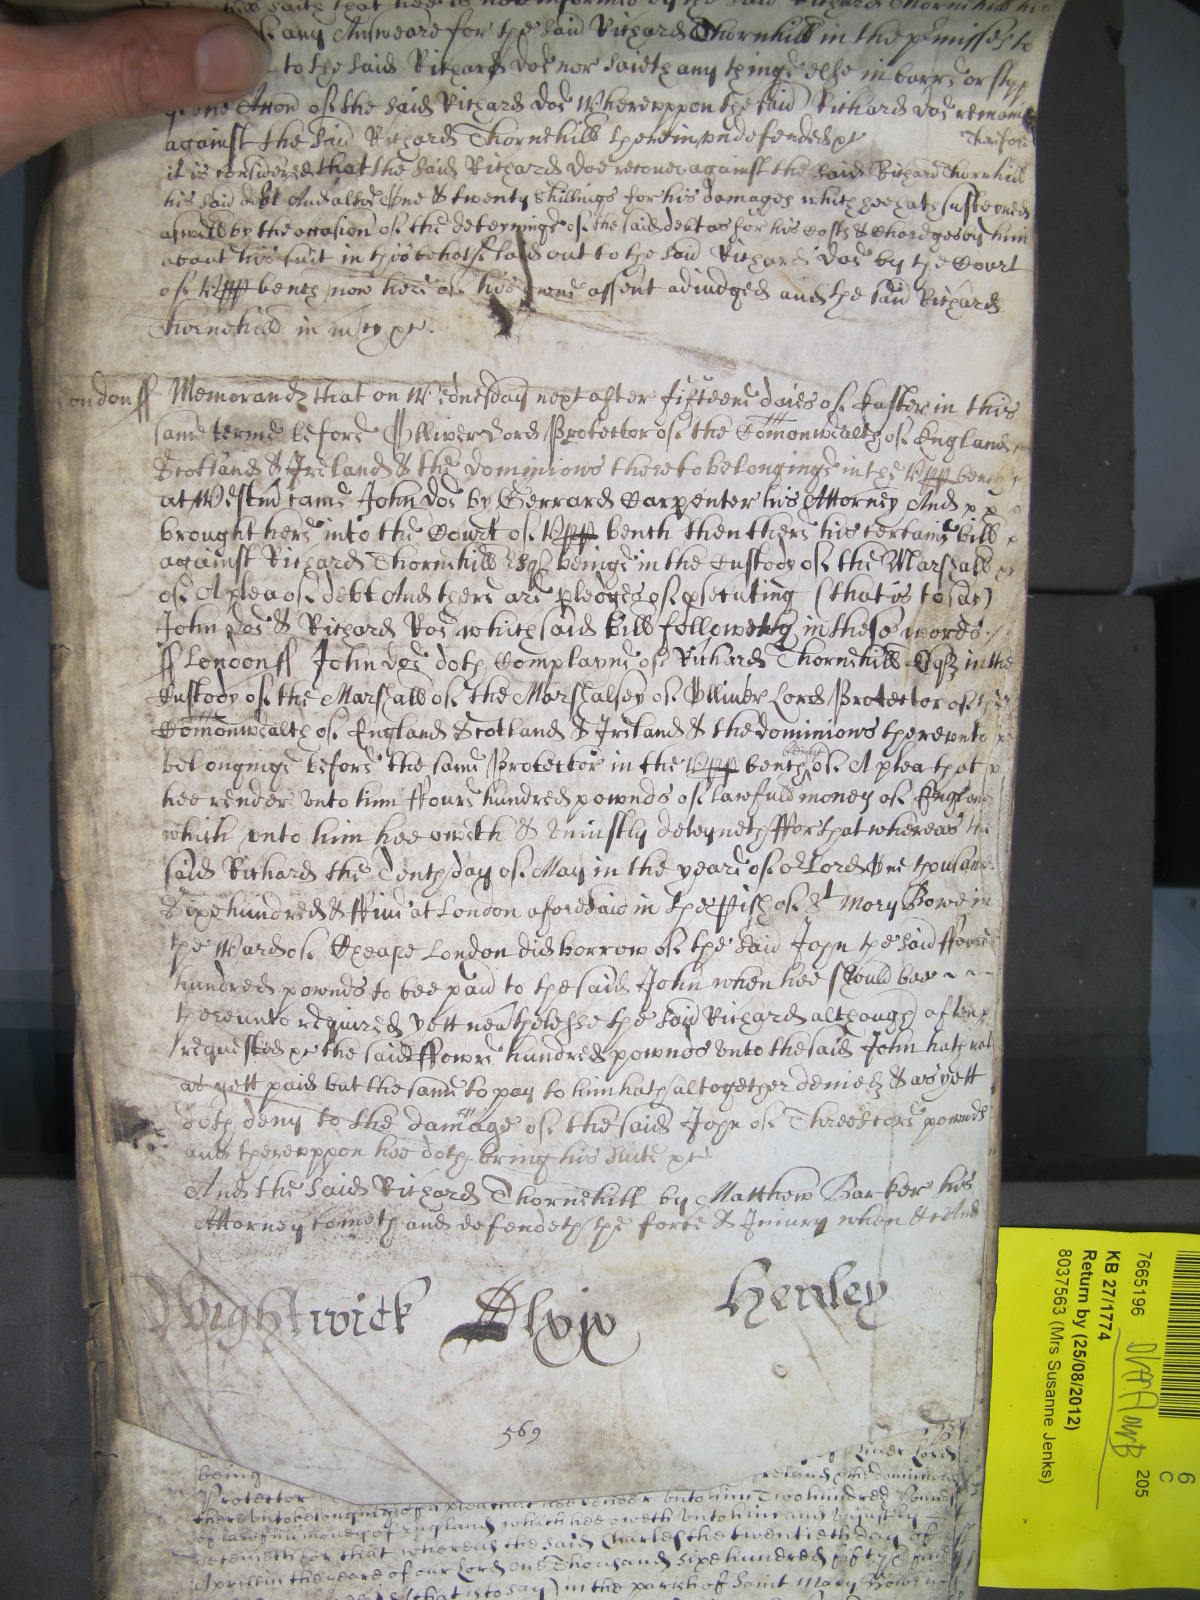 saith that hee is not informed by the said Richard Thornehill his
any Answeare for the said Richard Thornhill in the pmisses to
to the said Richard Doe nor saieth any thinge else in barre or
of the said Richard Doe Whereuppon the said Richard Doe remaines
against the said Richard Thornehill therein undefended &c Therefore
it is considered that the said Richard Doe recover against the said Richard Thornhill
his said debt And alsoe One & twenty shillings for his damages which hee hath susteyned
aswell by the occasion of the deteyninge of the said debt as for his Costs & Chardges by him
about his suit in this behalfe laid out to the said Richard Doe by the Court
of Upp bench now here of his owne assent adiudged and the said Richard
Thornehill in mcy &c.
London ss Memorand that on Wednesday next after fifteene daies of Easter in this
same terme before Olliver Lord Protector of the Comonwealth of England
Scotland & Ireland & the dominions thereto belonginge in the Upp bench
at Westm came John Doe by Gerrard Carpenter his Attorney And
brought here into the Court of Upp bench then there his certaine bill
against Richard Thornehill Esq beinge in the Custody of the Marshall &c
of A plea of debt And there are pledges of psecuting (that is to say)
John Doe & Richard Roe which said bill followeth in these words
ss London ss John Doe doth Complayne of Richard Thornehill Esq in the
Custody of the Marshall of the Marshalsey of Olliver Lord Protector of the
Comonwealth of England Scotland & Ireland & the dominions thereunto
belonginge before the same Protector in the Upp bench being of A plea that
hee render unto him ffoure hundred pownds of lawfull money of England
which unto him hee oweth & uniustly deteyneth ffor that whereas the
said Richard the Tenth day of May in the yeare of or Lord One thousand
Sixe hundred & ffiue at London aforesaid in the pish of St Mary Bowe in
the Ward of Cheape London did borrow of the said John the said ffoure
hundred pownds to bee paid to the said John when hee should bee
thereunto required yett neuthelesse the said Richard although often
requested &c the said ffowre hundred pownds unto the said John hath not
as yett paid but the same to pay to him hath altogether denied & as yett
doth deny to the damage of the said John of Three score pownds
and thereuppon hee doth bring his suite &c
And the said Richard Thornehill by Matthew Barker his
Attorney cometh and defendeth the force & Iniury when &c And
Wightwick Henley
569
Oliver Lord
being Ireland & the dominions
Protector
thereunto belonging of a plea that hee render unto him Two hundred Pounds
of lawfull money of England which hee oweth unto him and uniustly
deteineth for that whereas the said Charles the twentieth day of
Aprill in the yeare of our Lord one Thousand sixe hundred fifty &
(that is to say) in the parish of Saint Mary Bowe
7665196
KB 27/1774
Return by (25/08/2012)
8037563 (Mrs Susanne Jenks)
205
6
C